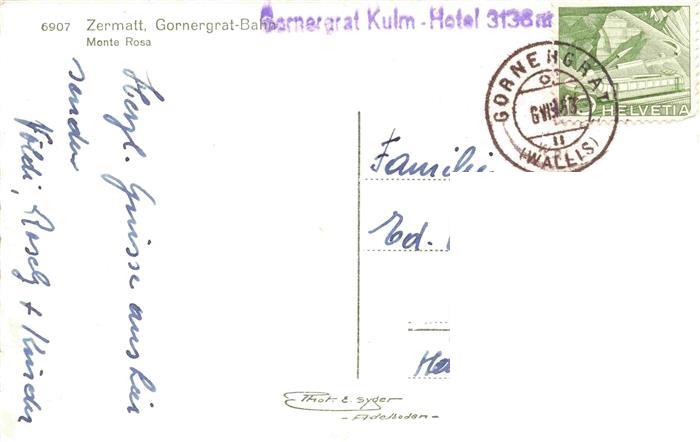 6907 Zermatt, Gornergrat-Bahn
Monte Rosa
Gornergrat Kulm-Hotel 3136m
GORNERGRAT
(WALLIS)
HELVETIA
Herzl. Grüsse aus hier
senden
Völdi, Rosely + Kinder
Familie
Ed.
Phot. E. Gyger
- Adelboden -